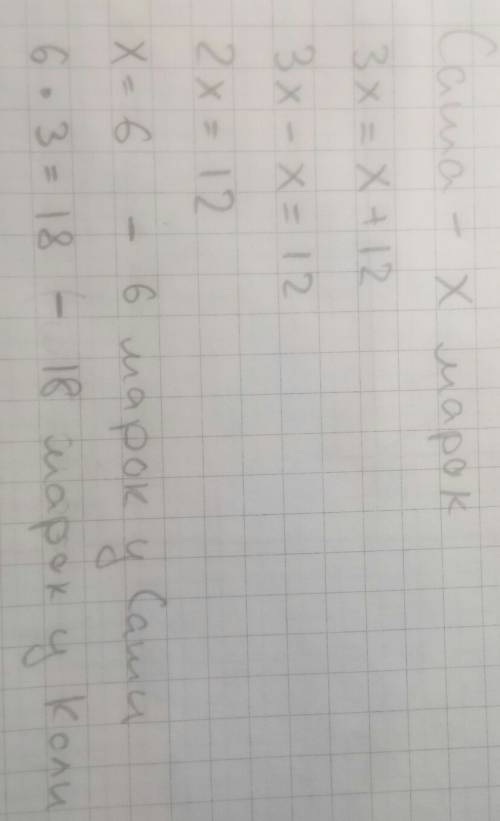 Саша - x марок
3x = x + 12
3x - x = 12
2x = 12
x = 6 - 6 марок у Саши
6 · 3 = 18 - 18 марок у Коли